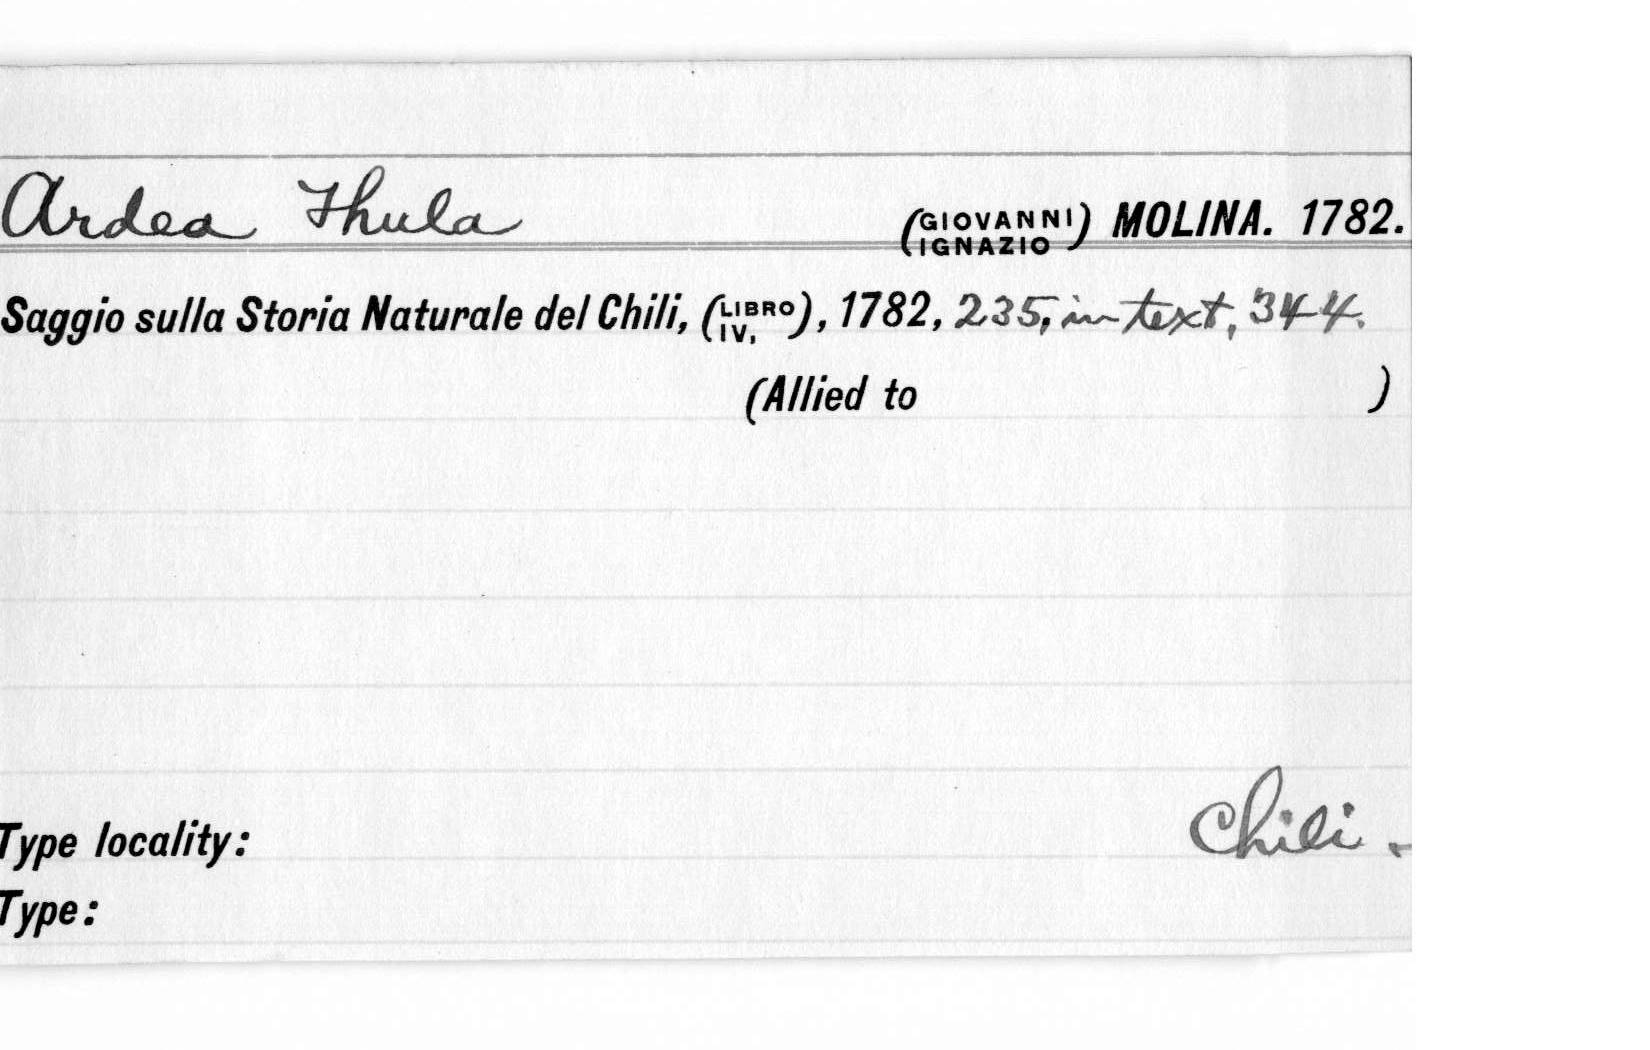 Ardea Thula (GIOVANNI IGNAZIO) MOLINA. 1782.
Saggio sulla Storia Naturale del Chili, (LIBRO IV,), 1782, 235, in text, 344.
(Allied to )
Type locality: Chili.
Type: